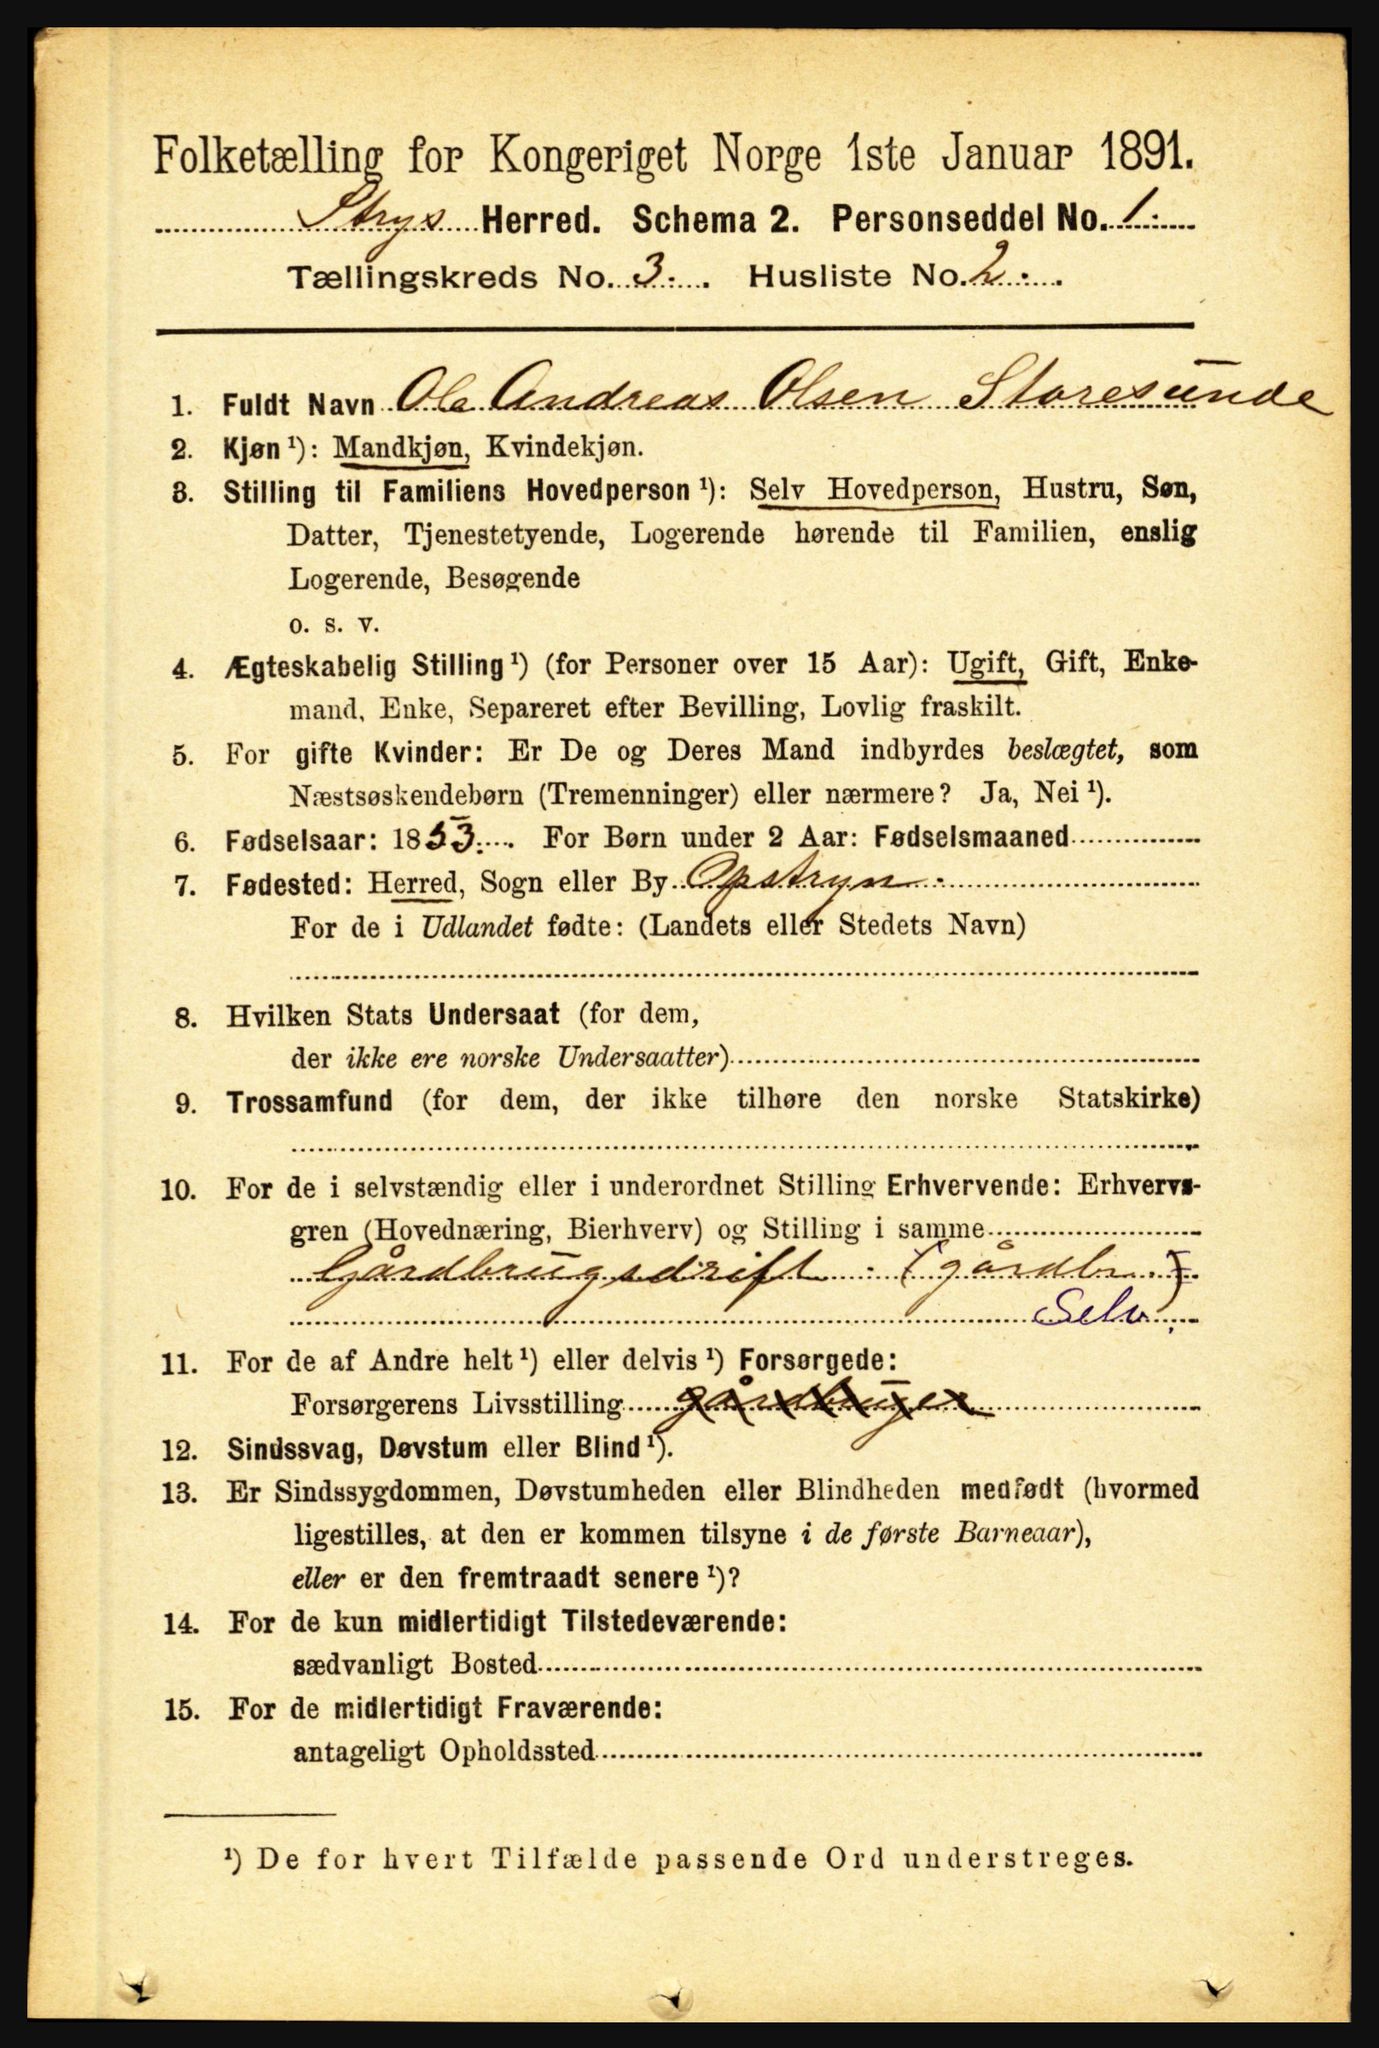 Folketælling for Kongeriget Norge 1ste Januar 1891.
Strys Herred. Schema 2. Personseddel No. 1.
Tællingskreds No. 3. Husliste No. 2.
1. Fuldt Navn Ole Andreas Olsen Storesunde
2. Kjøn ¹): Mandkjøn, Kvindekjøn.
3. Stilling til Familiens Hovedperson ¹): Selv Hovedperson, Hustru, Søn,
Datter, Tjenestetyende, Logerende hørende til Familien, enslig
Logerende, Besøgende
o. s. v.
4. Ægteskabelig Stilling ¹) (for Personer over 15 Aar): Ugift, Gift, Enke-
mand, Enke, Separeret efter Bevilling, Lovlig fraskilt.
5. For gifte Kvinder: Er De og Deres Mand indbyrdes beslægtet, som
Næstsøskendebørn (Tremenninger) eller nærmere? Ja, Nei ¹).
6. Fødselsaar: 1853. For Børn under 2 Aar: Fødselsmaaned
7. Fødested: Herred, Sogn eller By Opstryn.
For de i Udlandet fødte: (Landets eller Stedets Navn)
8. Hvilken Stats Undersaat (for dem,
der ikke ere norske Undersaatter)
9. Trossamfund (for dem, der ikke tilhøre den norske Statskirke)
10. For de i selvstændig eller i underordnet Stilling Erhvervende: Erhvervs-
gren (Hovednæring, Bierhverv) og Stilling i samme
Gårdbrugsdrift (gårdbr.)
Selv)
11. For de af Andre helt ¹) eller delvis ¹) Forsørgede:
Forsørgerens Livsstilling gårdbruger
12. Sindssvag, Døvstum eller Blind ¹).
13. Er Sindssygdommen, Døvstumheden eller Blindheden medfødt (hvormed
ligestilles, at den er kommen tilsyne i de første Barneaar),
eller er den fremtraadt senere ¹)?
14. For de kun midlertidigt Tilstedeværende:
sædvanligt Bosted
15. For de midlertidigt Fraværende:
antageligt Opholdssted
¹) De for hvert Tilfælde passende Ord understreges.